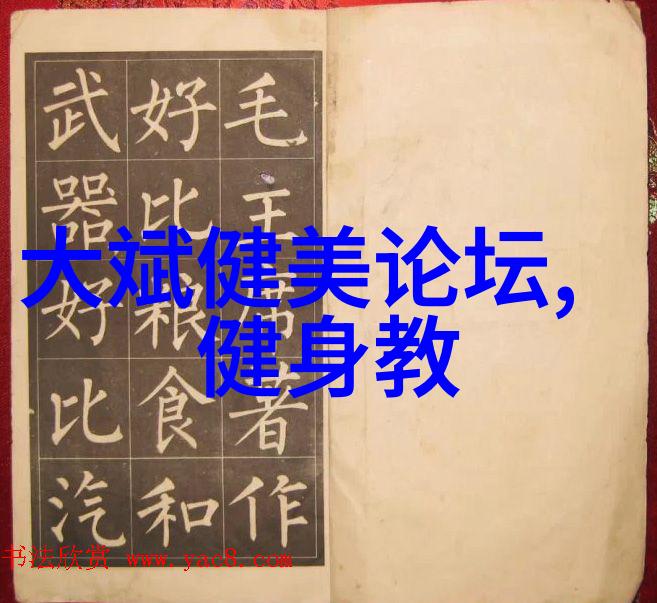 毛主席著作
好比粮食和
武器好比汽
大斌健美论坛,
健身教
书法欣赏 www.yac8.com